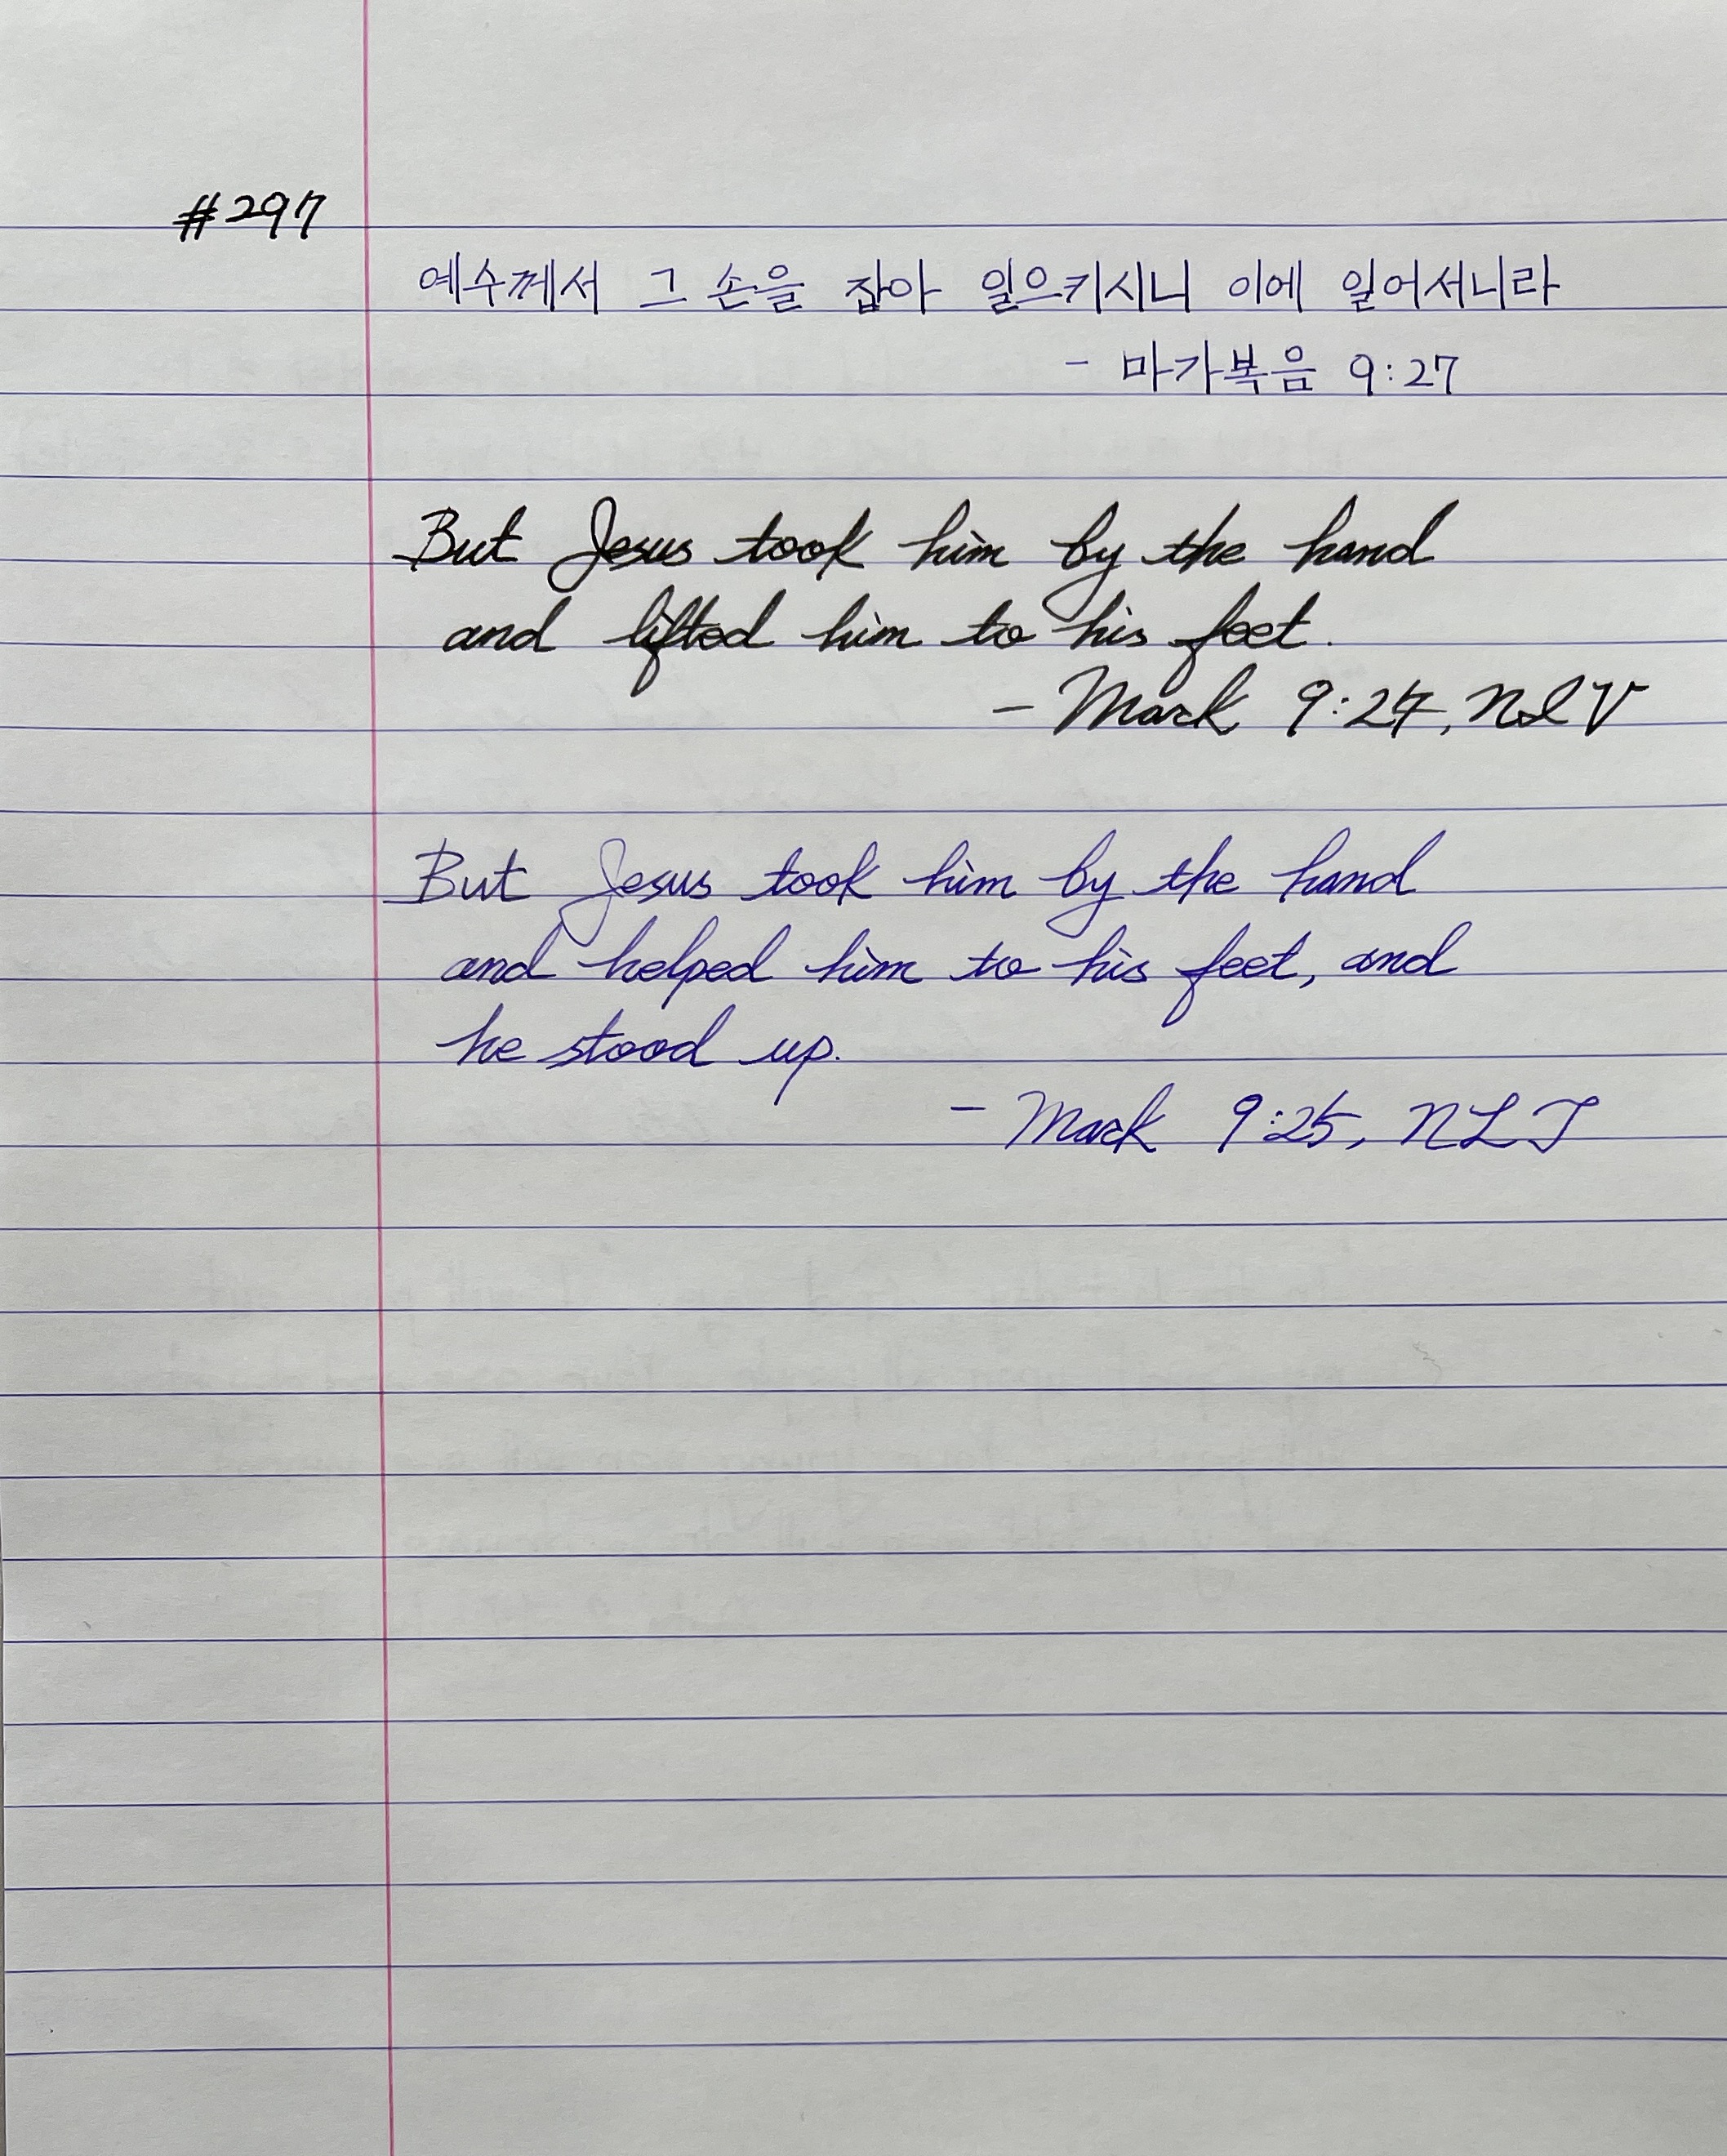 #297
예수께서 그 손을 잡아 일으키시니 이에 일어서니라
- 마가복음 9:27
But Jesus took him by the hand
and lifted him to his feet.
- Mark 9:24, NIV
But Jesus took him by the hand
and helped him to his feet, and
he stood up.
- Mark 9:25, NLT